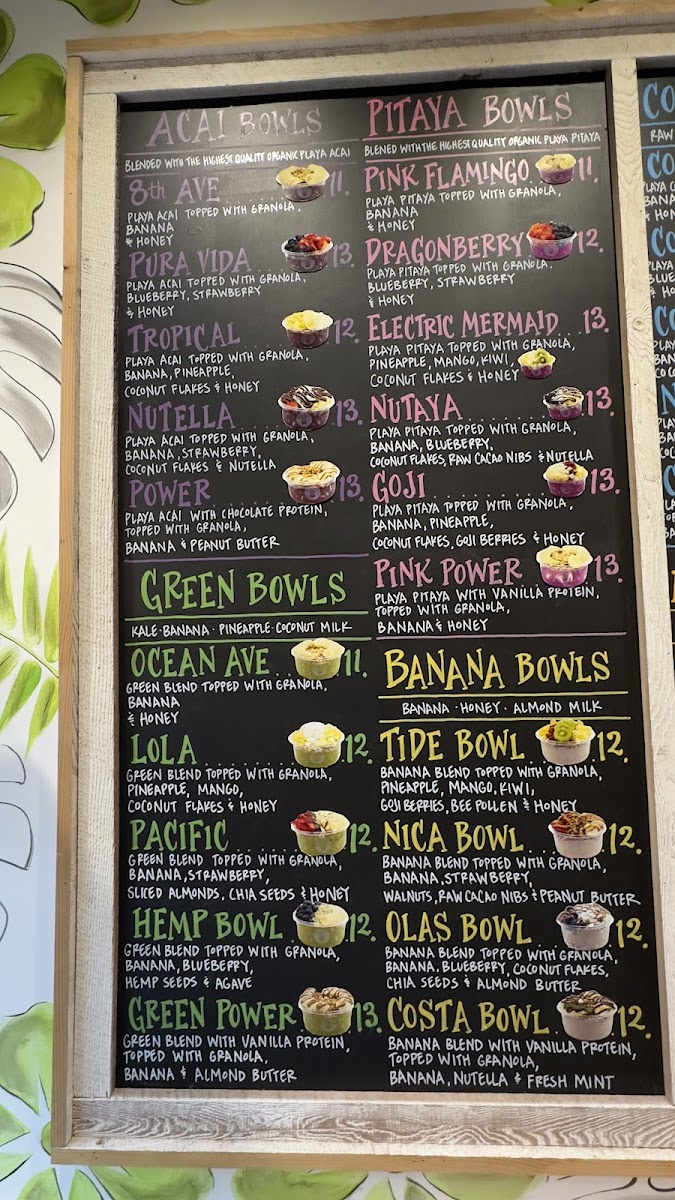 ACAI BOWLS
BLENDED WITH THE HIGHEST QUALITY ORGANIC PLAYA ACAI
8th AVE 11.
PLAYA ACAI TOPPED WITH GRANOLA,
BANANA
& HONEY
PURA VIDA 13.
PLAYA ACAI TOPPED WITH GRANOLA,
BLUEBERRY, STRAWBERRY
& HONEY
TROPICAL 12.
PLAYA ACAI TOPPED WITH GRANOLA,
BANANA, PINEAPPLE,
COCONUT FLAKES & HONEY
NUTELLA 13.
PLAYA ACAI TOPPED WITH GRANOLA,
BANANA, STRAWBERRY,
COCONUT FLAKES & NUTELLA
POWER 13.
PLAYA ACAI WITH CHOCOLATE PROTEIN,
TOPPED WITH GRANOLA,
BANANA & PEANUT BUTTER
GREEN BOWLS
KALE · BANANA · PINEAPPLE · COCONUT MILK
OCEAN AVE 11.
GREEN BLEND TOPPED WITH GRANOLA,
BANANA
& HONEY
LOLA 12.
GREEN BLEND TOPPED WITH GRANOLA,
PINEAPPLE, MANGO,
COCONUT FLAKES & HONEY
PACIFIC 12.
GREEN BLEND TOPPED WITH GRANOLA,
BANANA, STRAWBERRY,
SLICED ALMONDS, CHIA SEEDS & HONEY
HEMP BOWL 12.
GREEN BLEND TOPPED WITH GRANOLA,
BANANA, BLUEBERRY,
HEMP SEEDS & AGAVE
GREEN POWER 13.
GREEN BLEND WITH VANILLA PROTEIN,
TOPPED WITH GRANOLA,
BANANA & ALMOND BUTTER
PITAYA BOWLS
BLENED WITH THE HIGHEST QUALITY ORGANIC PLAYA PITAYA
PINK FLAMINGO 11.
PLAYA PITAYA TOPPED WITH GRANOLA,
BANANA
& HONEY
DRAGONBERRY 12.
PLAYA PITAYA TOPPED WITH GRANOLA,
BLUEBERRY, STRAWBERRY
& HONEY
ELECTRIC MERMAID 13.
PLAYA PITAYA TOPPED WITH GRANOLA,
PINEAPPLE, MANGO, KIWI,
COCONUT FLAKES & HONEY
NUTAYA 13.
PLAYA PITAYA TOPPED WITH GRANOLA,
BANANA, BLUEBERRY,
COCONUT FLAKES, RAW CACAO NIBS & NUTELLA
GOJI 13.
PLAYA PITAYA TOPPED WITH GRANOLA,
BANANA, PINEAPPLE,
COCONUT FLAKES, GOJI BERRIES & HONEY
PINK POWER 13.
PLAYA PITAYA WITH VANILLA PROTEIN,
TOPPED WITH GRANOLA,
BANANA & HONEY
BANANA BOWLS
BANANA · HONEY · ALMOND MILK
TIDE BOWL 12.
BANANA BLEND TOPPED WITH GRANOLA,
PINEAPPLE, MANGO, KIWI,
GOJI BERRIES, BEE POLLEN & HONEY
NICA BOWL 12.
BANANA BLEND TOPPED WITH GRANOLA,
BANANA, STRAWBERRY,
WALNUTS, RAW CACAO NIBS & PEANUT BUTTER
OLAS BOWL 12.
BANANA BLEND TOPPED WITH GRANOLA,
BANANA, BLUEBERRY, COCONUT FLAKES,
CHIA SEEDS & ALMOND BUTTER
COSTA BOWL 12.
BANANA BLEND WITH VANILLA PROTEIN,
TOPPED WITH GRANOLA,
BANANA, NUTELLA & FRESH MINT
RAW